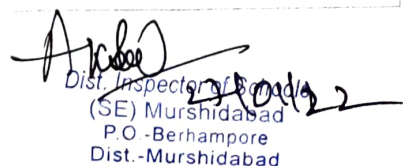 Dist. Inspector of Schools
27/01/22
(SE) Murshidabad
P.O.-Berhampore
Dist.-Murshidabad